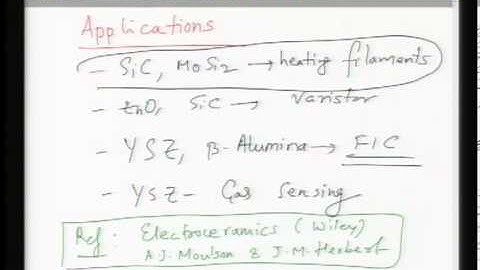 Applications
- SiC, MoSi2 → heating filaments
- ZnO, SiC → Varistor
- YSZ, β-Alumina → FIC
- YSZ - Gas Sensing
Ref : Electroceramics (Wiley)
A.J. Moulson & J.M. Herbert